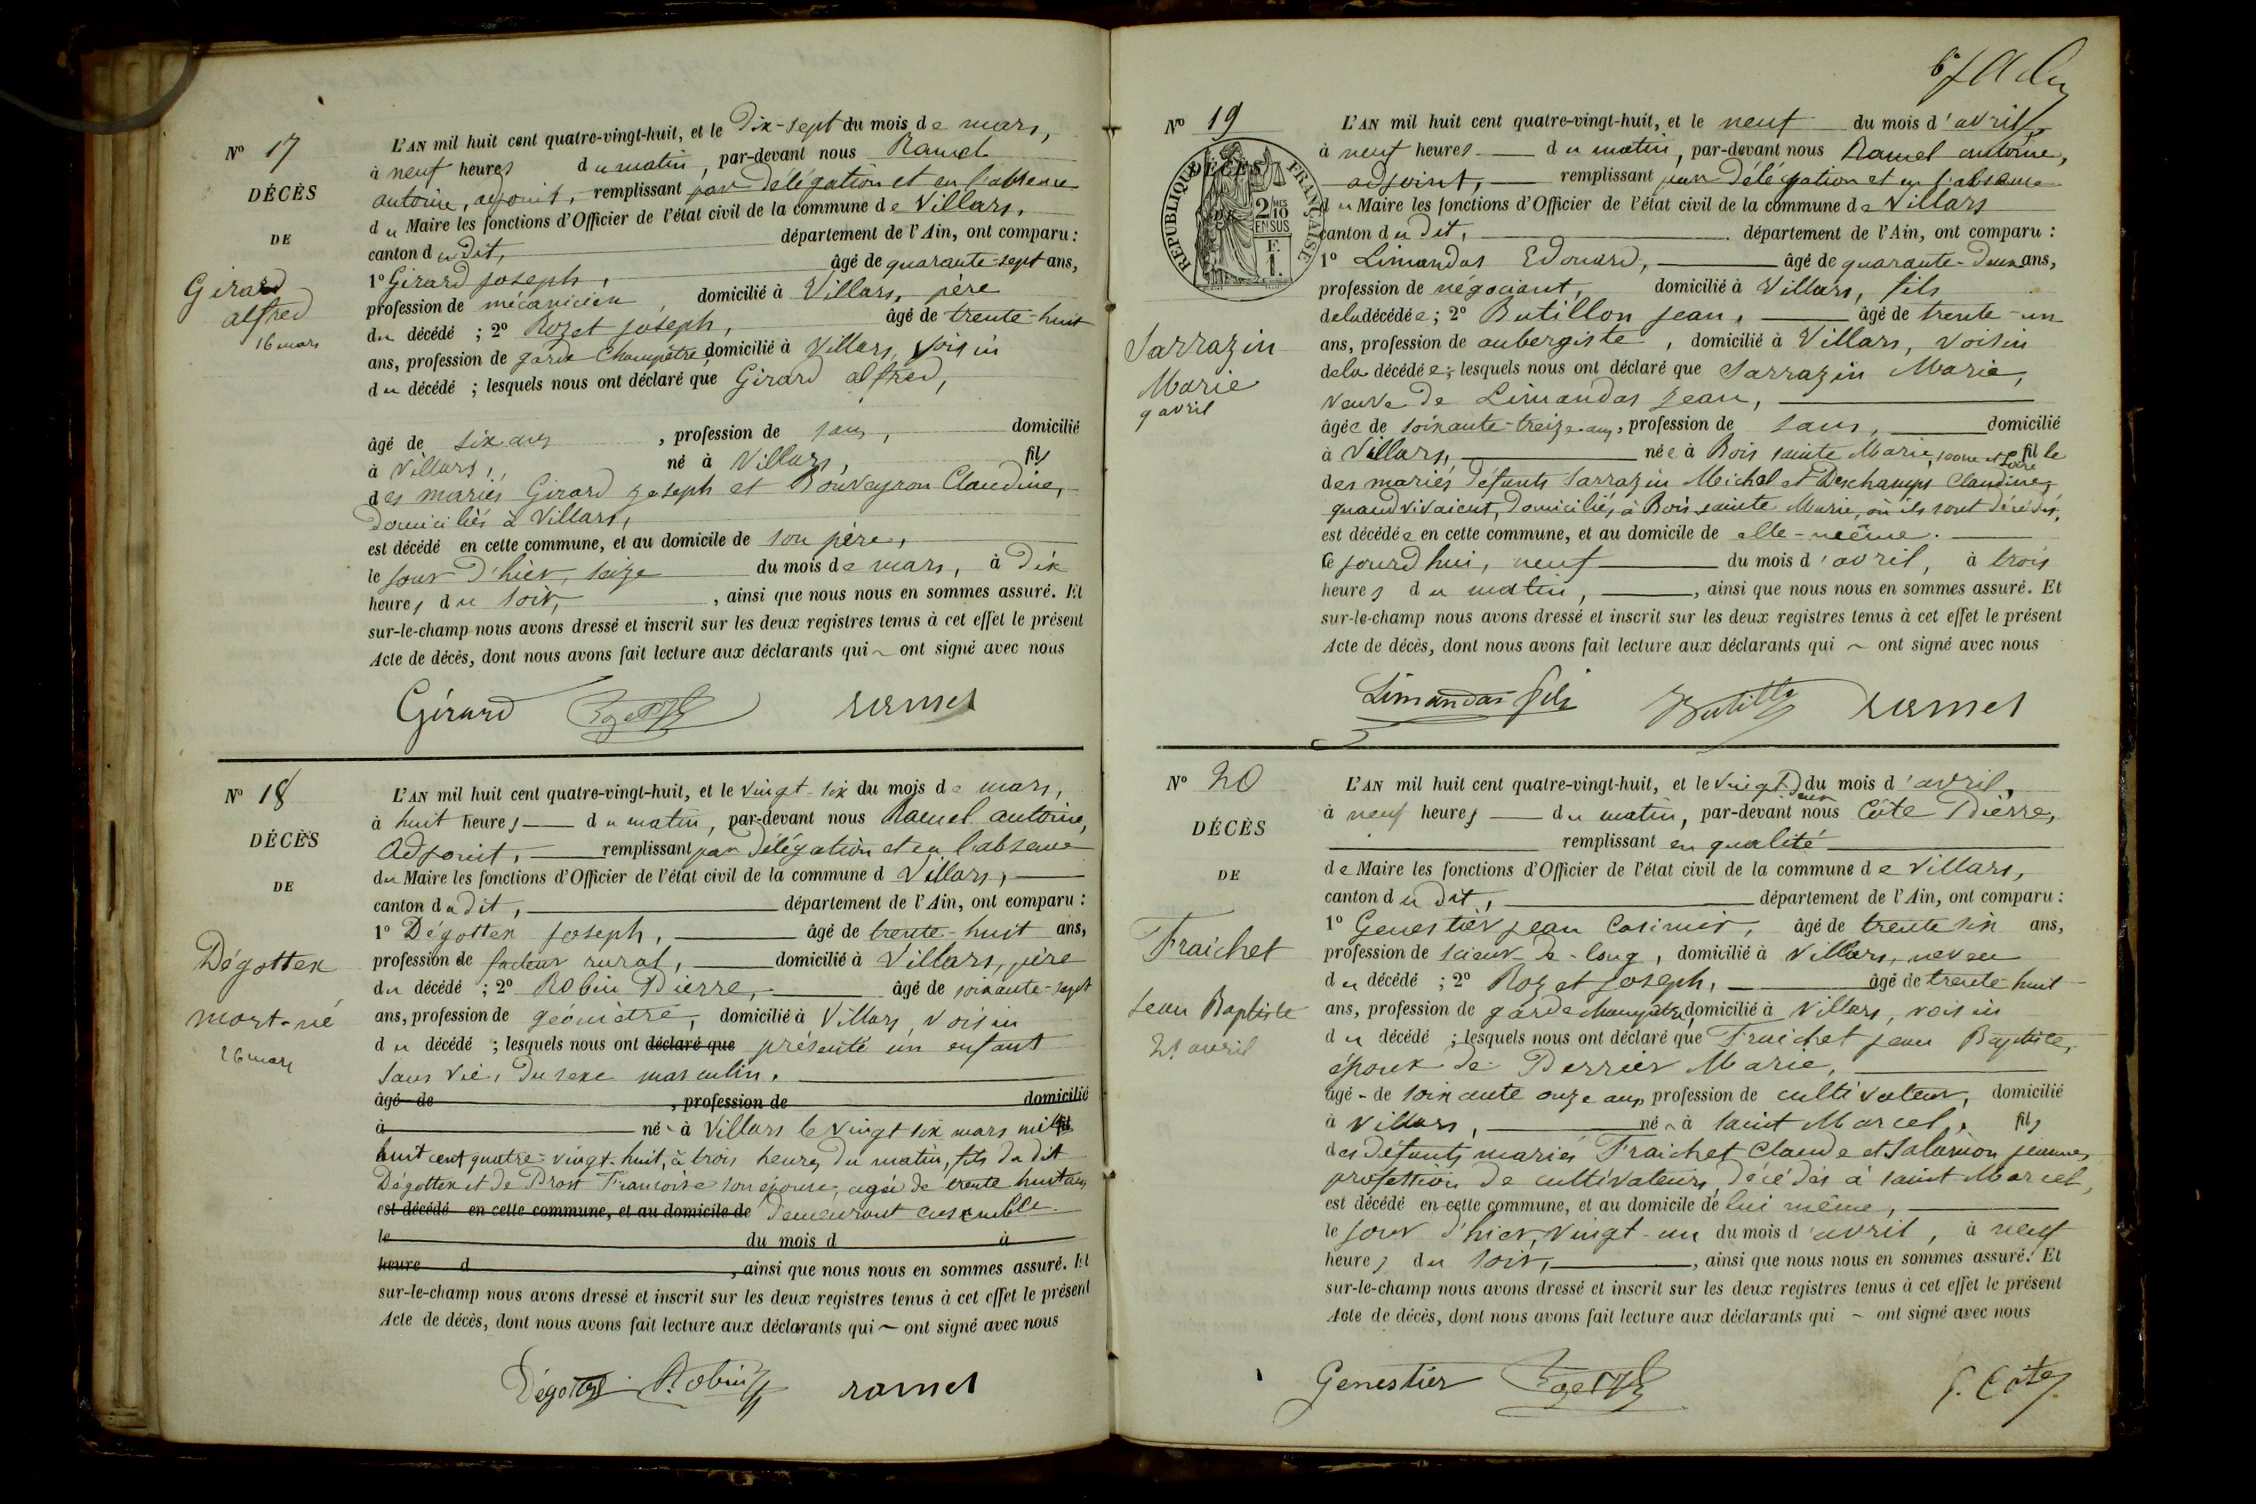 Nº 17
DÉCÈS
DE
Girard
alfred
16 mars
L'AN mil huit cent quatre-vingt-huit, et le Dix-sept du mois de mars,
à neuf heures du matin, par-devant nous Ramel
antoine, adjoint, remplissant par délégation et en l'absence
du Maire les fonctions d'Officier de l'état civil de la commune de Villars,
canton dudit, département de l'Ain, ont comparu :
1º Girard joseph, âgé de quarante-sept ans,
profession de mécanicien, domicilié à Villars, père
du décédé ; 2º Rozet joseph, âgé de trente-huit
ans, profession de garde Champêtre, domicilié à Villars, voisin
du décédé ; lesquels nous ont déclaré que Girard alfred,
âgé de six ans, profession de sans, domicilié
à Villars, né à Villars, fils
des mariés Girard joseph et Bouveyron Claudine,
domiciliés à Villars,
est décédé en cette commune, et au domicile de son père,
le jour d'hier, seize du mois de mars, à dix
heures du soir, ainsi que nous nous en sommes assuré. Et
sur-le-champ nous avons dressé et inscrit sur les deux registres tenus à cet effet le présent
Acte de décès, dont nous avons fait lecture aux déclarants qui ~ ont signé avec nous
Girard ramel
Nº 18
DÉCÈS
DE
Dégottex
mort-né
26 mars
L'AN mil huit cent quatre-vingt-huit, et le vingt-six du mois de mars,
à huit heures du matin, par-devant nous Ramel antoine,
Adjoint, remplissant par délégation et en l'absence
du Maire les fonctions d'Officier de l'état civil de la commune d Villars,
canton dudit, département de l'Ain, ont comparu :
1º Dégottex joseph, âgé de trente-huit ans,
profession de facteur rural, domicilié à Villars, père
du décédé ; 2º Robin Pierre, âgé de soixante-sept
ans, profession de géomètre, domicilié à Villars, voisin
du décédé ; lesquels nous ont déclaré que présenté un enfant
sans vie, du sexe masculin.
âgé de , profession de domicilié
à né à Villars le vingt six mars mil fil
huit cent quatre-vingt-huit, à trois heures du matin, fils du dit
Dégottex et de Prost Francoise son épouse, agée de trente huit ans
est décédé en cette commune, et au domicile de demeurant ensemble.
le du mois d à
heure d , ainsi que nous nous en sommes assuré. Et
sur-le-champ nous avons dressé et inscrit sur les deux registres tenus à cet effet le présent
Acte de décès, dont nous avons fait lecture aux déclarants qui ~ ont signé avec nous
Dégottex Robin ramel
Nº 19
DÉCÈS
RÉPUBLIQUE FRANÇAISE
2/10 MES
EN SUS
F.
1.
Sarrazin
Marie
9 avril
L'AN mil huit cent quatre-vingt-huit, et le neuf du mois d'avril,
à neuf heures du matin, par-devant nous Ramel antoine,
adjoint, remplissant par délégation et en l'absence
du Maire les fonctions d'Officier de l'état civil de la commune de Villars
canton dudit, département de l'Ain, ont comparu :
1º Limandas Edouard, âgé de quarante-deux ans,
profession de négociant, domicilié à Villars, fils
de la décédée ; 2º Butillon jean, âgé de trente-un
ans, profession de aubergiste, domicilié à Villars, voisin
de la décédée ; lesquels nous ont déclaré que Sarrazin Marie,
veuve de Limandas jean,
âgée de soixante-treize ans, profession de sans, domicilié
à Villars, née à Bois sainte Marie, saone et Loire fille
des mariés défunts Sarrazin Michel et Deschamps Claudine,
quand vivaient, domiciliés à Bois sainte Marie, où ils sont décédés,
est décédée en cette commune, et au domicile de elle-même.
le jourd'hui, neuf du mois d'avril, à trois
heures du matin, ainsi que nous nous en sommes assuré. Et
sur-le-champ nous avons dressé et inscrit sur les deux registres tenus à cet effet le présent
Acte de décès, dont nous avons fait lecture aux déclarants qui ~ ont signé avec nous
Limandas fils Butillon ramel
Nº 20
DÉCÈS
DE
Fraichet
Jean Baptiste
21 avril
L'AN mil huit cent quatre-vingt-huit, et le vingt deux du mois d'avril,
à neuf heures du matin, par-devant nous Côte Pierre,
remplissant en qualité
de Maire les fonctions d'Officier de l'état civil de la commune de Villars,
canton dudit, département de l'Ain, ont comparu :
1º Genestier jean Casimir, âgé de trente six ans,
profession de scieur de long, domicilié à Villars, neveu
du décédé ; 2º Rozet joseph, âgé de trente-huit
ans, profession de garde champêtre, domicilié à Villars, voisin
du décédé ; lesquels nous ont déclaré que Fraichet jean Baptiste,
époux de Perrier Marie,
âgé de soixante onze ans, profession de cultivateur, domicilié
à Villars, né à saint Marcel, fils
des défunts mariés Fraichet Claude et Salamon jeanne,
profession de cultivateurs, décédés à saint Marcel,
est décédé en cette commune, et au domicile de lui même,
le jour d'hier, vingt-un du mois d'avril, à neuf
heures du soir, ainsi que nous nous en sommes assuré. Et
sur-le-champ nous avons dressé et inscrit sur les deux registres tenus à cet effet le présent
Acte de décès, dont nous avons fait lecture aux déclarants qui ~ ont signé avec nous
Genestier P. Côte